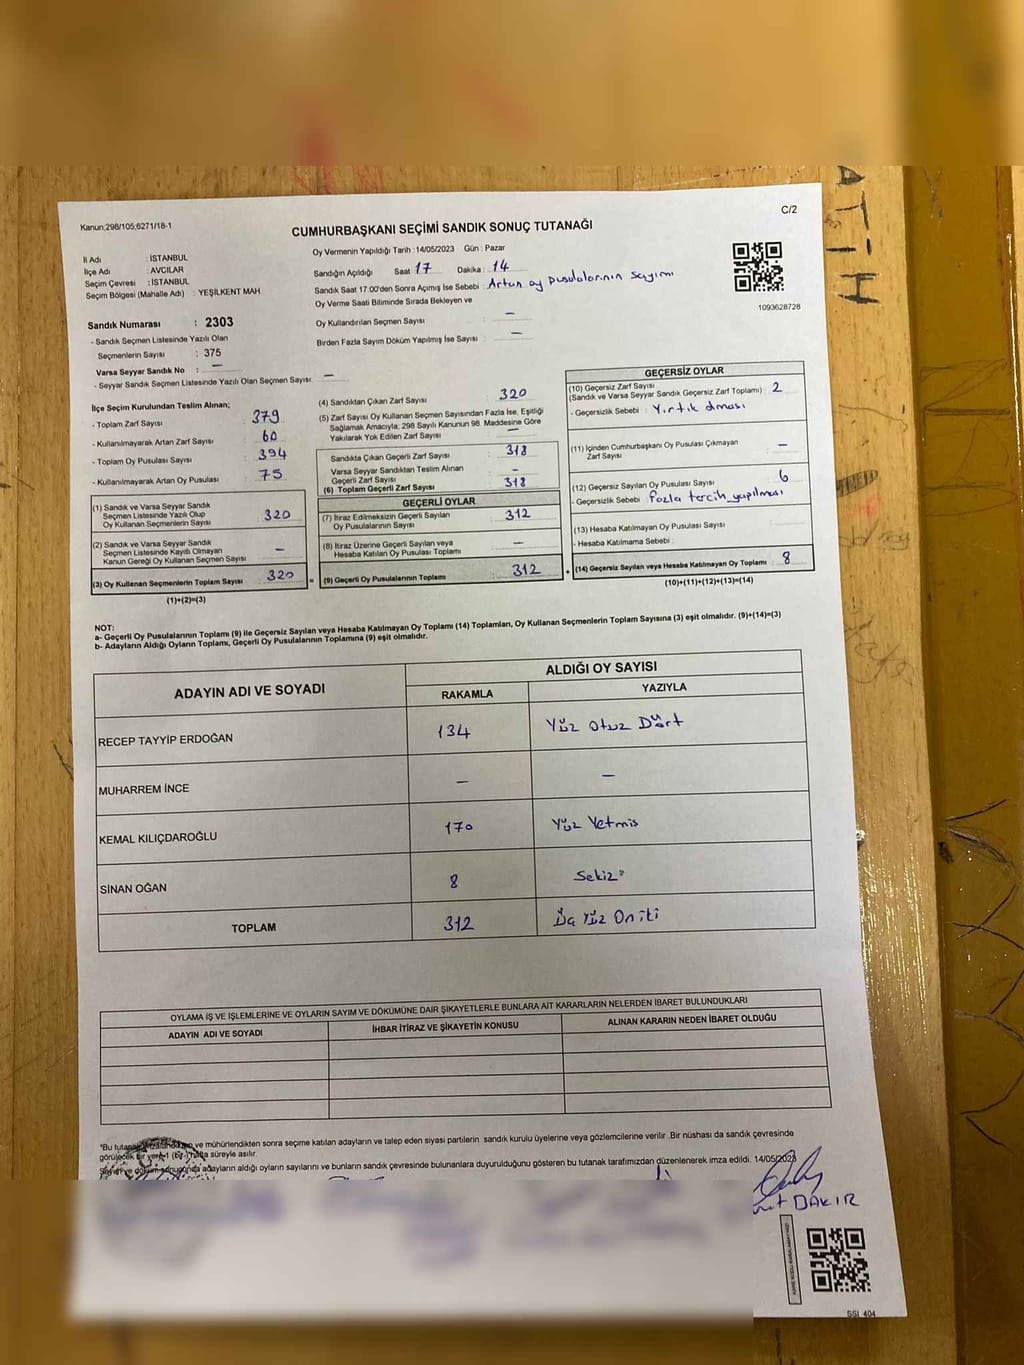 C/2
Kanun:298/105;6271/18-1
CUMHURBAŞKANI SEÇİMİ SANDIK SONUÇ TUTANAĞI
İl Adı : İSTANBUL
İlçe Adı : AVCILAR
Seçim Çevresi : İSTANBUL
Seçim Bölgesi (Mahalle Adı) : YEŞİLKENT MAH
Oy Vermenin Yapıldığı Tarih : 14/05/2023 Gün : Pazar
Sandığın Açıldığı Saat 17 Dakika : 14
Sandık Saat 17.00'den Sonra Açımış İse Sebebi : Artan oy pusulalarının sayımı
Oy Verme Saati Bitiminde Sırada Bekleyen ve
Oy Kullandırılan Seçmen Sayısı : –
Birden Fazla Sayım Döküm Yapılmış İse Sayısı : –
1093628728
Sandık Numarası : 2303
- Sandık Seçmen Listesinde Yazılı Olan
Seçmenlerin Sayısı : 375
Varsa Seyyar Sandık No : –
- Seyyar Sandık Seçmen Listesinde Yazılı Olan Seçmen Sayısı: –
İlçe Seçim Kurulundan Teslim Alınan;
- Toplam Zarf Sayısı : 379
- Kullanılmayarak Artan Zarf Sayısı : 60
- Toplam Oy Pusulası Sayısı : 394
- Kullanılmayarak Artan Oy Pusulası : 75
(1) Sandık ve Varsa Seyyar Sandık
Seçmen Listesinde Yazılı Olup
Oy Kullanan Seçmenlerin Sayısı : 320
(2) Sandık ve Varsa Seyyar Sandık
Seçmen Listesinde Kayıtlı Olmayan
Kanun Gereği Oy Kullanan Seçmen Sayısı : –
(3) Oy Kullanan Seçmenlerin Toplam Sayısı : 320
(1)+(2)=(3)
(4) Sandıktan Çıkan Zarf Sayısı : 320
(5) Zarf Sayısı Oy Kullanan Seçmen Sayısından Fazla İse, Eşitliği
Sağlamak Amacıyla; 298 Sayılı Kanunun 98. Maddesine Göre
Yakılarak Yok Edilen Zarf Sayısı : –
Sandıkta Çıkan Geçerli Zarf Sayısı : 318
Varsa Seyyar Sandıktan Teslim Alınan
Geçerli Zarf Sayısı : –
(6) Toplam Geçerli Zarf Sayısı : 318
GEÇERLİ OYLAR
(7) İtiraz Edilmeksizin Geçerli Sayılan
Oy Pusulalarının Sayısı : 312
(8) İtiraz Üzerine Geçerli Sayılan veya
Hesaba Katılan Oy Pusulası Toplamı : –
= (9) Geçerli Oy Pusulalarının Toplamı : 312
GEÇERSİZ OYLAR
(10) Geçersiz Zarf Sayısı
(Sandık ve Varsa Seyyar Sandık Geçersiz Zarf Toplamı) : 2
- Geçersizlik Sebebi : Yırtık olması
(11) İçinden Cumhurbaşkanı Oy Pusulası Çıkmayan
Zarf Sayısı : –
(12) Geçersiz Sayılan Oy Pusulası Sayısı : 6
- Geçersizlik Sebebi : fazla tercih yapılması
(13) Hesaba Katılmayan Oy Pusulası Sayısı :
- Hesaba Katılmama Sebebi :
+ (14) Geçersiz Sayılan veya Hesaba Katılmayan Oy Toplamı : 8
(10)+(11)+(12)+(13)=(14)
NOT:
a- Geçerli Oy Pusulalarının Toplamı (9) ile Geçersiz Sayılan veya Hesaba Katılmayan Oy Toplamı (14) Toplamları, Oy Kullanan Seçmenlerin Toplam Sayısına (3) eşit olmalıdır. (9)+(14)=(3)
b- Adayların Aldığı Oyların Toplamı, Geçerli Oy Pusulalarının Toplamına (9) eşit olmalıdır.
ADAYIN ADI VE SOYADI
ALDIĞI OY SAYISI
RAKAMLA YAZIYLA
RECEP TAYYİP ERDOĞAN 134 Yüz Otuz Dört
MUHARREM İNCE – –
KEMAL KILIÇDAROĞLU 170 Yüz Yetmis
SİNAN OĞAN 8 Sekiz
TOPLAM 312 Üç Yüz On iki
OYLAMA İŞ VE İŞLEMLERİNE VE OYLARIN SAYIM VE DÖKÜMÜNE DAİR ŞİKAYETLERLE BUNLARA AİT KARARLARIN NELERDEN İBARET BULUNDUKLARI
ADAYIN ADI VE SOYADI İHBAR İTİRAZ VE ŞİKAYETİN KONUSU ALINAN KARARIN NEDEN İBARET OLDUĞU
*Bu ve mühürlendikten sonra seçime katılan adayların ve talep eden siyasi partilerin sandık kurulu üyelerine veya gözlemcilerine verilir .Bir nüshası da sandık çevresinde
görülecek bir yere 1 (bir) hafta süreyle asılır.
adayların aldığı oyların sayılarını ve bunların sandık çevresinde bulunanlara duyurulduğunu gösteren bu tutanak tarafımızdan düzenlenerek imza edildi. 14/05/2023
DAKIR
SSI_404